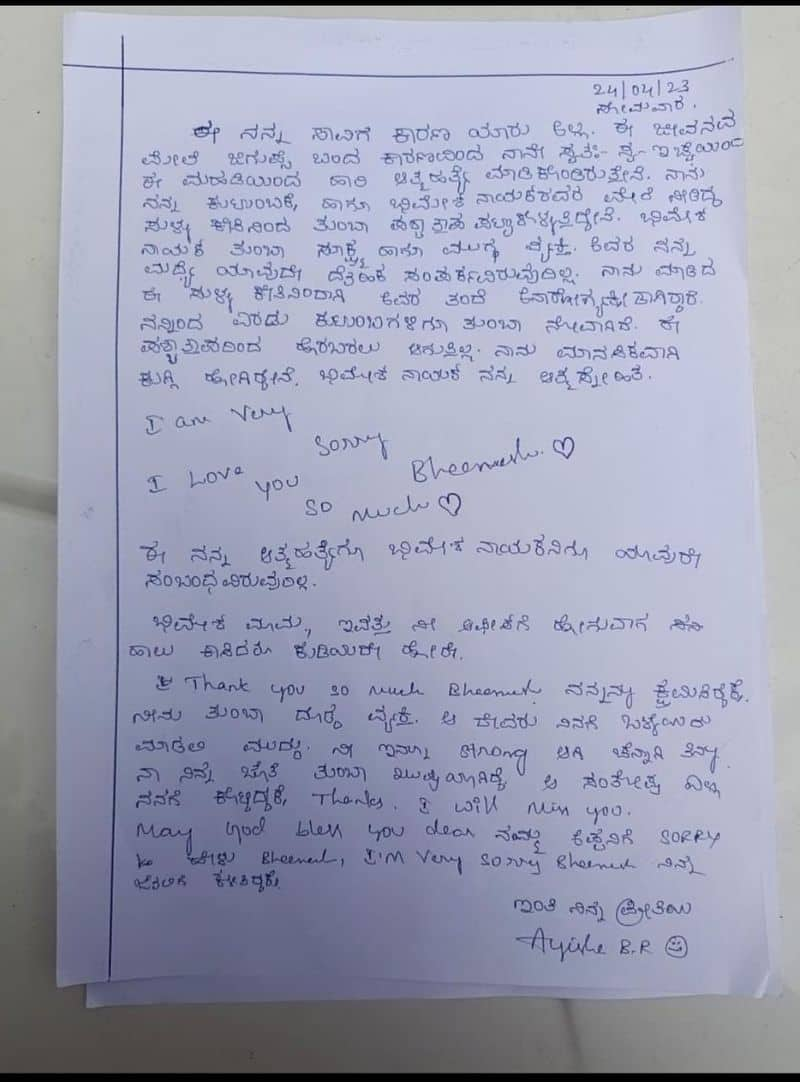 24/04/23
ಸೋಮವಾರ.
ಈ ನನ್ನ ಸಾವಿಗೆ ಕಾರಣ ಯಾರು ಅಲ್ಲ. ಈ ಜೀವನದ
ಮೇಲೆ ಜಿಗುಪ್ಸೆ ಬಂದ ಕಾರಣದಿಂದ ನಾನೇ ಸ್ವತಃ- ಸ್ವ-ಇಚ್ಛೆಯಿಂದ
ಈ ಮಹಡಿಯಿಂದ ಹಾರಿ ಆತ್ಮಹತ್ಯೆ ಮಾಡಿಕೊಂಡಿರುತ್ತೇನೆ. ನಾನು
ನನ್ನ ಕುಟುಂಬಕ್ಕೆ, ಹಾಗೂ ಭೀಮೇಶ ನಾಯಕರವರ ಮೇಲೆ ನೀಡಿದ್ದ
ಸುಳ್ಳು ಕೇಸಿನಿಂದ ತುಂಬಾ ಪಶ್ಚಾತ್ತಾಪ ಪಟ್ಟುಕೊಳ್ಳುತ್ತಿದ್ದೇನೆ. ಭೀಮೇಶ
ನಾಯಕ ತುಂಬಾ ಸೂಕ್ಷ್ಮ ಹಾಗೂ ಮುಗ್ಧ ವ್ಯಕ್ತಿ. ಅವರ ನನ್ನ
ಮಧ್ಯೆ ಯಾವುದೇ ದೈಹಿಕ ಸಂಪರ್ಕವಿರುವುದಿಲ್ಲ. ನಾನು ಮಾಡಿದ
ಈ ಸುಳ್ಳು ಕೇಸಿನಿಂದಾಗಿ ಅವರ ತಂದೆ
ನನ್ನಿಂದ ಎರಡು ಕುಟುಂಬಗಳಿಗೂ ತುಂಬಾ ನೋವಾಗಿದೆ. ಈ
ಪಶ್ಚಾತ್ತಾಪದಿಂದ ಹೊರಬರಲು ಆಗುತ್ತಿಲ್ಲ. ನಾನು ಮಾನಸಿಕವಾಗಿ
ಕುಗ್ಗಿ ಹೋಗಿದ್ದೇನೆ. ಭೀಮೇಶ ನಾಯಕ ನನ್ನ ಆತ್ಮಸ್ನೇಹಿತ.
I am Very
Sorry
I Love you Bheemesh. ♡
so much ♡
ಈ ನನ್ನ ಆತ್ಮಹತ್ಯೆಗೂ ಭೀಮೇಶ ನಾಯಕನಿಗೂ ಯಾವುದೇ
ಸಂಬಂಧವಿರುವುದಿಲ್ಲ.
ಭೀಮೇಶ ಮಾಮ, ಇವತ್ತು ನೀ ಆಫೀಸಿಗೆ ಹೋಗುವಾಗ
ಹಾಲು ಕಾಸಿದರೂ ಕುಡಿಯದೇ ಹೋದೆ.
Thank you so much Bheemesh. ನನ್ನನ್ನು ಕ್ಷಮಿಸಿದ್ದಕ್ಕೆ.
ನೀನು ತುಂಬಾ ವ್ಯಕ್ತಿ. ಆ ದೇವರು ನಿನಗೆ ಒಳ್ಳೆಯದು
ಮಾಡಲಿ ಮುದ್ದು. ನೀ ಇನ್ನೂ strong ಆಗಿ ಚೆನ್ನಾಗಿ ತಿನ್ನು.
ನಾ ನಿನ್ನ ಜೊತೆ ತುಂಬಾ ಖುಷಿಯಾಗಿದ್ದೆ ಆ ಸಂತೋಷ ಎಲ್ಲಾ
ನನಗೆ ಕೊಟ್ಟಿದ್ದಕ್ಕೆ, Thanks. I will Miss you.
May God bless you dear ನಮ್ಮ SORRY
ಹೇಳು Bheemesh, I'M Very sorry Bheemesh ನಿನ್ನ
ಇಂತಿ ನಿನ್ನ ಪ್ರೀತಿಯ
Ayisha B.R ☺